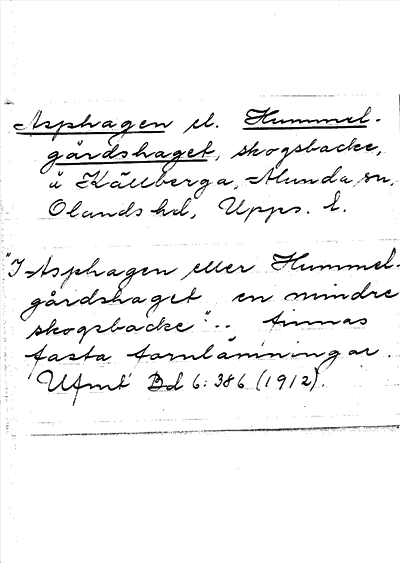 Asphagen el. Hummel-
gårdshaget, skogsbacke,
å Källberga, Alunda sn,
Olands hd, Upps. l.
"I Asphagen eller Hummel-
gårdshaget en mindre
skogsbacke".. finnas
fasta fornlämningar.
Ufmt Bd 6: 386 (1912).